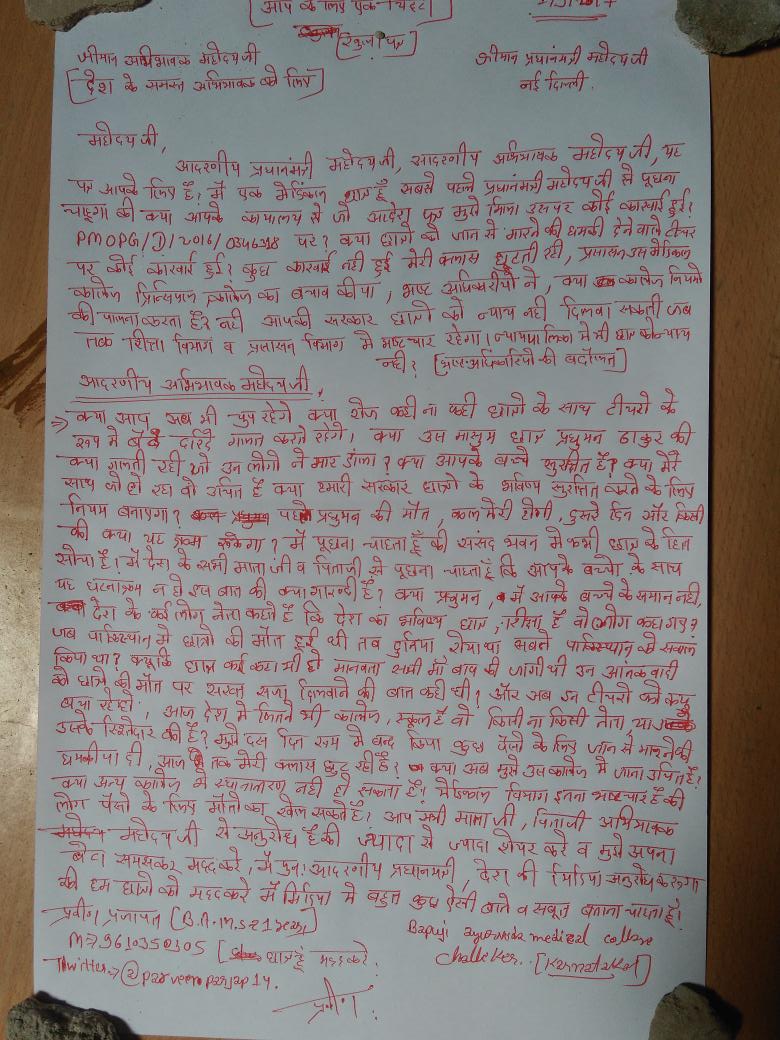 [आप के लिए एक चिट्ठी]
[खुला पत्र]
श्रीमान अभिभावक महोदय जी श्रीमान प्रधानमंत्री महोदय जी
[देश के समस्त अभिभावक के लिए] नई दिल्ली.
महोदय जी,
आदरणीय प्रधानमंत्री महोदय जी, आदरणीय अभिभावक महोदय जी, यह
पत्र आपके लिए है? मैं एक मेडिकल छात्र हूँ सबसे पहले प्रधानमंत्री महोदय जी से पूछना
चाहूगा की क्या आपके कार्यालय से जो आदेश पत्र मुझे मिला उस पर कोई कारवाई हुई?
PMOPG/D/2016/0346218 पर? क्या छात्रों को जान से मारने की धमकी देने वाले टीचर
पर कोई कारवाई हुई? कुछ कारवाई नही हुई मेरी क्लास छुटती रही, प्रसासन उस मेडिकल
कालेज प्रिन्सिपाल कालेज का बचाव कीया, भष्ट अधिकारीयो ने, क्या कालेज नियमो
की पालना करता है? नही आपकी सरकार छात्रों को न्याय नही दिलवा सकती जब
तक शिक्षा विभाग व प्रसासन विभाग मे भष्टाचार रहेगा। न्यायपालिका मे भी छात्र को न्याय
नही? [भ्रष्ट अधिकारियो की बदौलत]
आदरणीय अभिभावक महोदय जी,
⇒ क्या आप अब भी चुप रहेगे क्या रोज कही ना कही छात्रो के साथ टीचरो के
रूप मे बैठे दरिंदे गलत करते रहेगे। क्या उस मासुम छात्र प्रधुमन ठाकुर की
क्या गलती रही जो उन लोगो ने मार डाला? क्या आपके बच्चे सुरक्षित है? क्या मेरे
साथ जो हो रहा वो उचित है क्या हमारी सरकार छात्रो के भविष्य सुरक्षित करने के लिए
नियम बनाएगा? पहले प्रधुमन की मौत, कल मेरी होगी, दुसरे दिन और किसी
की क्या यह रुकेगा? मैं पूछना चाहता हूँ की संसद भवन मे कभी छात्र के हित
सोचा है? मैं देश के सभी माता जी व पिताजी से पूछना चाहता हूँ कि आपके बच्चो के साथ
यह घटनाक्रम न हो इस बात की क्या गारन्टी है? क्या प्रधुमन, मैं आपके बच्चे के समान नही,
देश के कई लोग नेता कहते है कि देश का भविष्य छात्र, शिक्षा है वो लोग कहा गए?
जब पाकिस्थान मे छात्रो की मौत हुई थी तब दुनिया रोया था सबने पाकिस्थान को सवाल
किया था? क्यूकि छात्र कई का भी हो मानवता सभी माँ बाप की जागी थी उन आतंकवादी
को छात्रो की मौत पर सख्त सजा दिलवाने की बात कही थी? और अब उन टीचरो को क्यू
बचा रहे हो, आज देश मे जितने भी कालेज, स्कूल है वो किसी ना किसी नेता, या
उसके रिश्तेदार की है? मुझे दस दिन रूम मे बन्द किया कुछ पैसो के लिए जान से मारने की
धमकीया दी, आज तक मेरी क्लास छुट रही है? क्या अब मुझे उस कालेज मे जाना उचित है?
क्या अन्य कालेज मे स्थानातरण नही हो सकता है! मेडिकल विभाग इतना भष्टाचार है की
लोग पैसो के लिए मौत का खेल सकते है? आप सभी माता जी, पिताजी अभिभावक
महोदय जी से अनुरोध है की ज्यादा से ज्यादा शेयर करे व मुझे अपना
बेटा समझकर मदद करे, मैं पुनः आदरणीय प्रधानमंत्री, देश की मिडिया अनुरोध करूगा
की हम छात्रो की मदद करे मैं मिडिया मे बहुत कुछ ऐसी बाते व सबूत बताना चाहता हूँ!
प्रवीण प्रजापत [B.A.M.S 1 year] Bapuji ayurveda medical college
M→9610350105 [छात्र हूं मदद करे. Challeker. [Karnataka]
Twitter→@parveenparjap14.
प्रवीण.